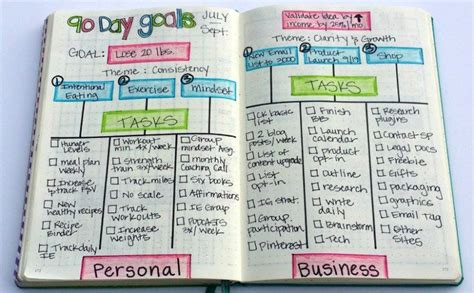 90 Day goals
JULY
Sept.
GOAL:
Lose 20 lbs.
Theme: Consistency
1
2
3
Intentional
Eating
Exercise
Mindset
TASKS
Hunger
Levels
meal plan
weekly
Increase
New
healthy recipes
Recipe
Binder
Track daily
Workout
min. 4x/week
Strength
train
Track miles
No scale
Track
workouts
Increase
weights
Group
mindset
monthly
Coaching Call
Six books
Affirmations
IE Group
Podcasts
3x/week
Personal
Validate Idea by
increase
income by
Theme: Clarity & Growth
1
2
3
New Email
List to 2000
Product
Launch 9/19
Shop
TASKS
CK basic
list
2 blog
posts/week
List of
content upgrade
List
opt-in
IG strat.
Group
participation
Pinterest
Finish
Launch
calendar
product
opt-in
Outline
research
write
daily
Brainstorm
Tech
Research
plugins
Contact SP
Legal/Docs
Freebie
Gifts
packaging
graphics
Email Tag
Other
Sites
Business